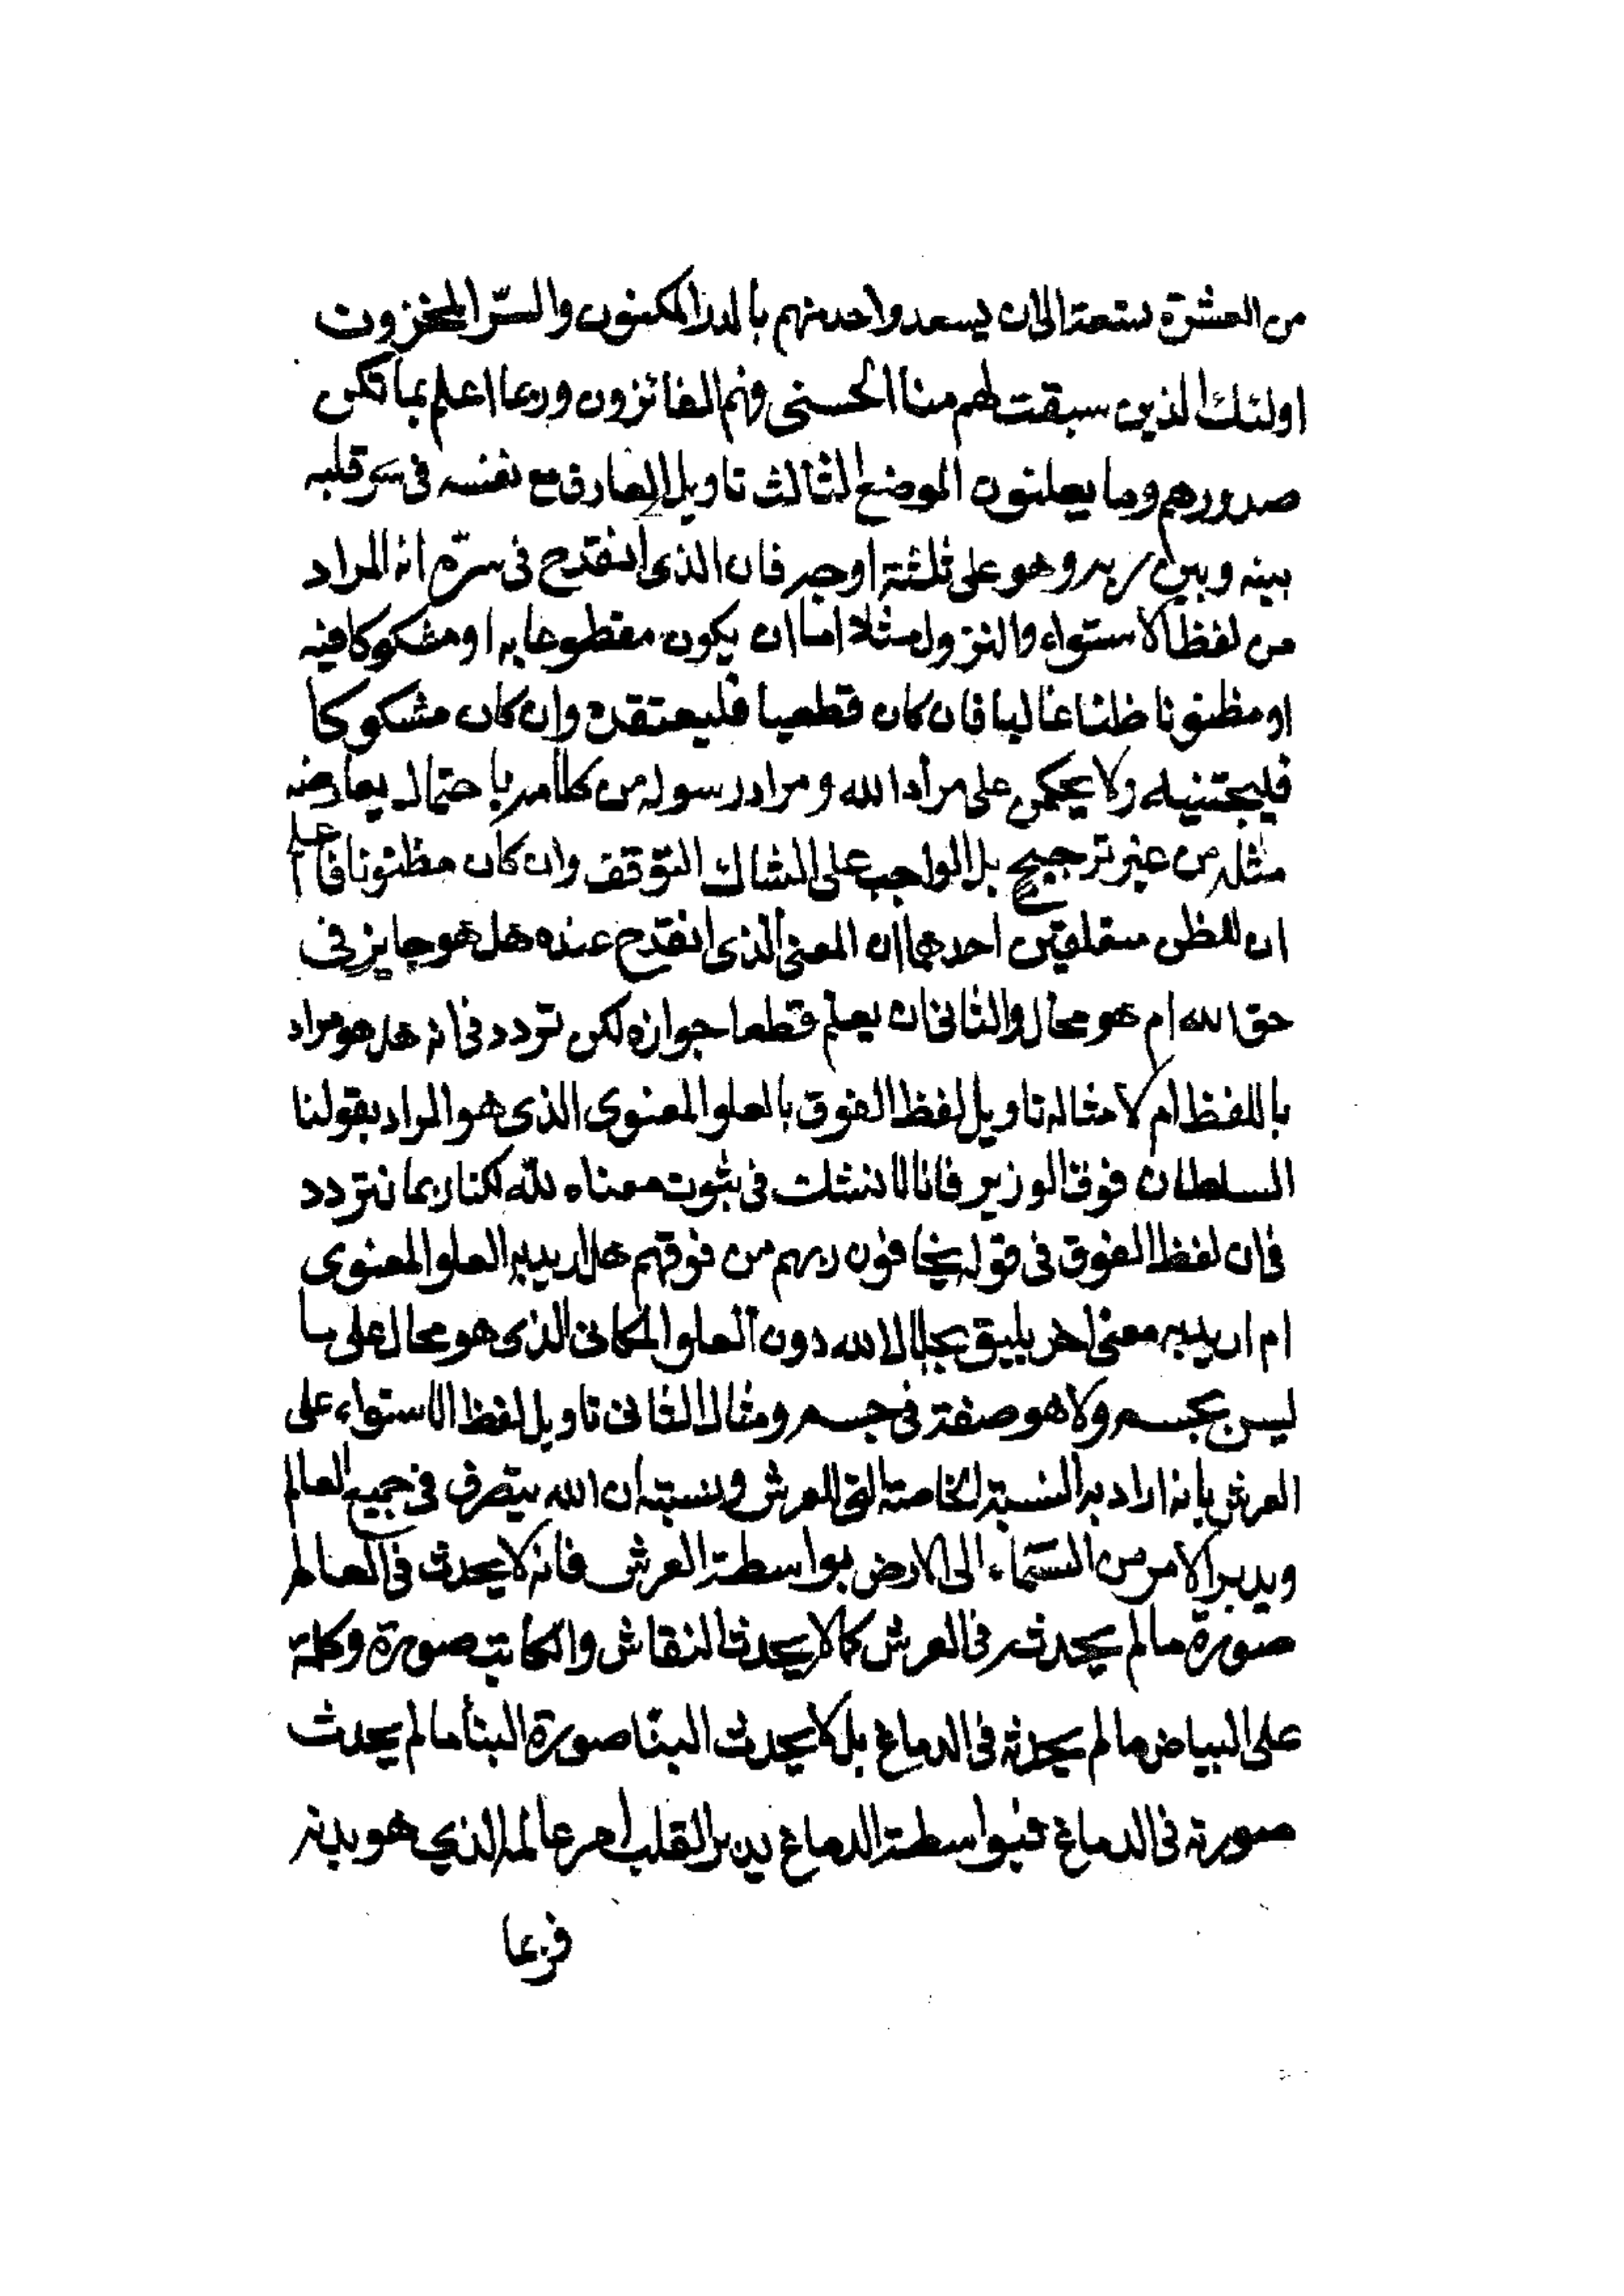 من العشرة تسعة الى ان يسعد واحد منهم بالدر المكنون والسّر المخزون
اولئك الذين سبقت لهم منا الحسنى وهم الفائزون وربما اعلم بما تكن
صدورهم وما يعلنون الموضع الثالث تاويل العارف مع نفسه فى سر قلبه
بينه وبين ربه وهو على ثلثة اوجه فان الذى انقدح فى سرّه انه المراد
من لفظ الاستواء والنزول مثلا اما ان يكون مقطوعا به او مشكوكا فيه
او مظنونا ظنا غالبا فان كان قطعيا فليعتقده وان كان مشكوكا
فليجتنبه ولا يحكمن على مراد الله ومراد رسوله من كلامه باحتمال يعارضه
مثله من غير ترجيح بل الواجب على الشاك التوقف وان كان مظنونا فاعلم
ان للظن متعلقين احدهما ان المعنى الذى انقدح عنده هل هو جايز فى
حق الله ام هو محال والثانى ان يعلم قطعا جوازه لكن تردد فى انه هل هو مراد
باللفظ ام لا مثاله تاويل لفظ الفوق بالعلو المعنوى الذى هو المراد بقولنا
السلطان فوق الوزير فانا لا نشك فى ثبوت معناه لله لكنا ربما نتردد
فى ان لفظ الفوق فى قوله يخافون ربهم من فوقهم هل اريد به العلو المعنوى
ام اريد به معنى اخر يليق بجلال الله دون العلو المكانى الذى هو محال على ما
ليس بجسم ولا هو صفة فى جسم ومثال الثانى تاويل لفظ الاستواء على
العرش بانه اراد به النسبة الخاصة التى للعرش ونسبته ان الله يتصرف فى جميع العالم
ويدبر الامر من السّماء الى الارض بواسطة العرش فانه لا يحدث فى العالم
صورة ما لم يحدث فى العرش كما لا يحدث النقاش والكاتب صورة وكلمة
على البياض ما لم يحدثه فى الدماغ بل لا يحدث البنّا صورة البنأ ما لم يحدث
صورته فى الدماغ فبواسطة الدماغ يدبر القلب امر عالمه الذي هو بدنه
فربما